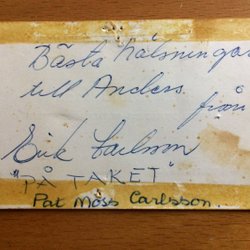 Bästa hälsningar
till Anders
från
Erik Carlsson
"PÅ TAKET"
Pat Moss Carlsson.